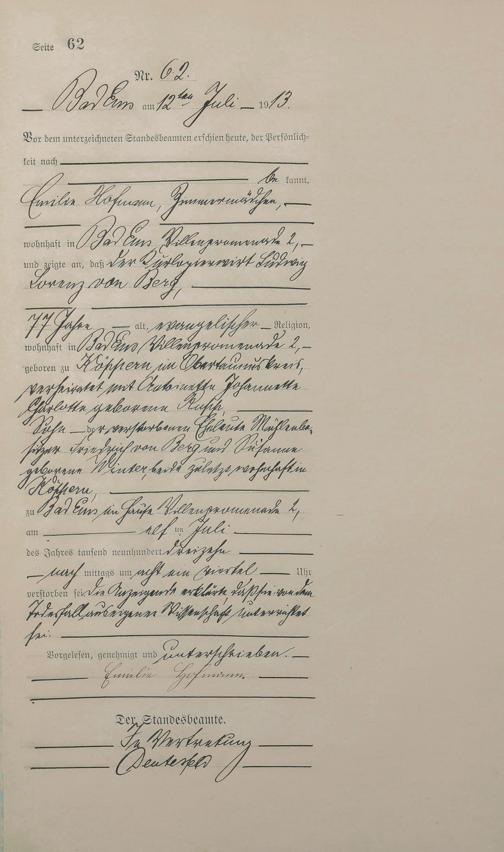 Seite 62
Nr. 62.
Bad Ems am 12ten Juli 1913
Vor dem unterzeichneten Standesbeamten erschien heute, der Persönlich-
keit nach
be kannt,
Emilie Hofmann, Zimmermädchen,
wohnhaft in Bad Ems, Villenpromenade 2,
und zeigte an, daß der Kurlogierwirt Ludwig
Lorenz von Berg,
77 Jahre alt, evangelischer Religion,
wohnhaft in Bad Ems, Villenpromenade 2,
geboren zu Köppern, im Obertaunuskreis,
verheiratet mit Antoinette Johannette
Charlotte geborene
Sohn der verstorbenen Eheleute Mühlenbe-
sitzer Friedrich von Berg und Susanne
geborene Winter, beide zuletzt wohnhaft in
Köppern,
zu Bad Ems, im Hause Villenpromenade 2,
am elf ten Juli
des Jahres tausend neunhundert dreizehn
nach mittags um acht ein viertel Uhr
verstorben sei. Die Anzeigende erklärte, daß sie von dem
Todesfall aus eigener Wissenschaft unterrichtet
sei.
Vorgelesen, genehmigt und unterschrieben.
Emilie Hofmann.
Der Standesbeamte.
In Vertretung